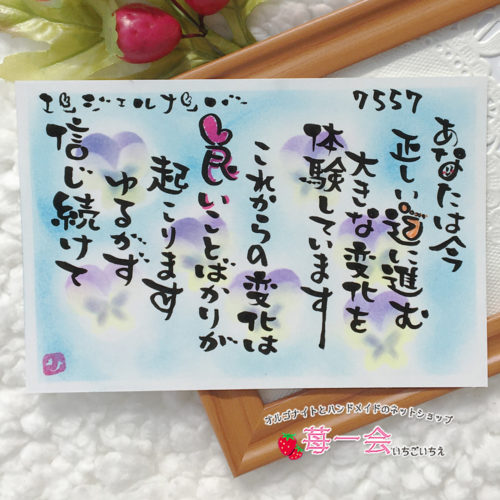 エンジェルナンバー 7557
あなたは今
正しい道に進む
大きな変化を
体験しています
これからの変化は
良いことばかりが
起こります
ゆるがず
信じ続けて
オルゴナイトとハンドメイドのネットショップ
苺一会いちごいちえ